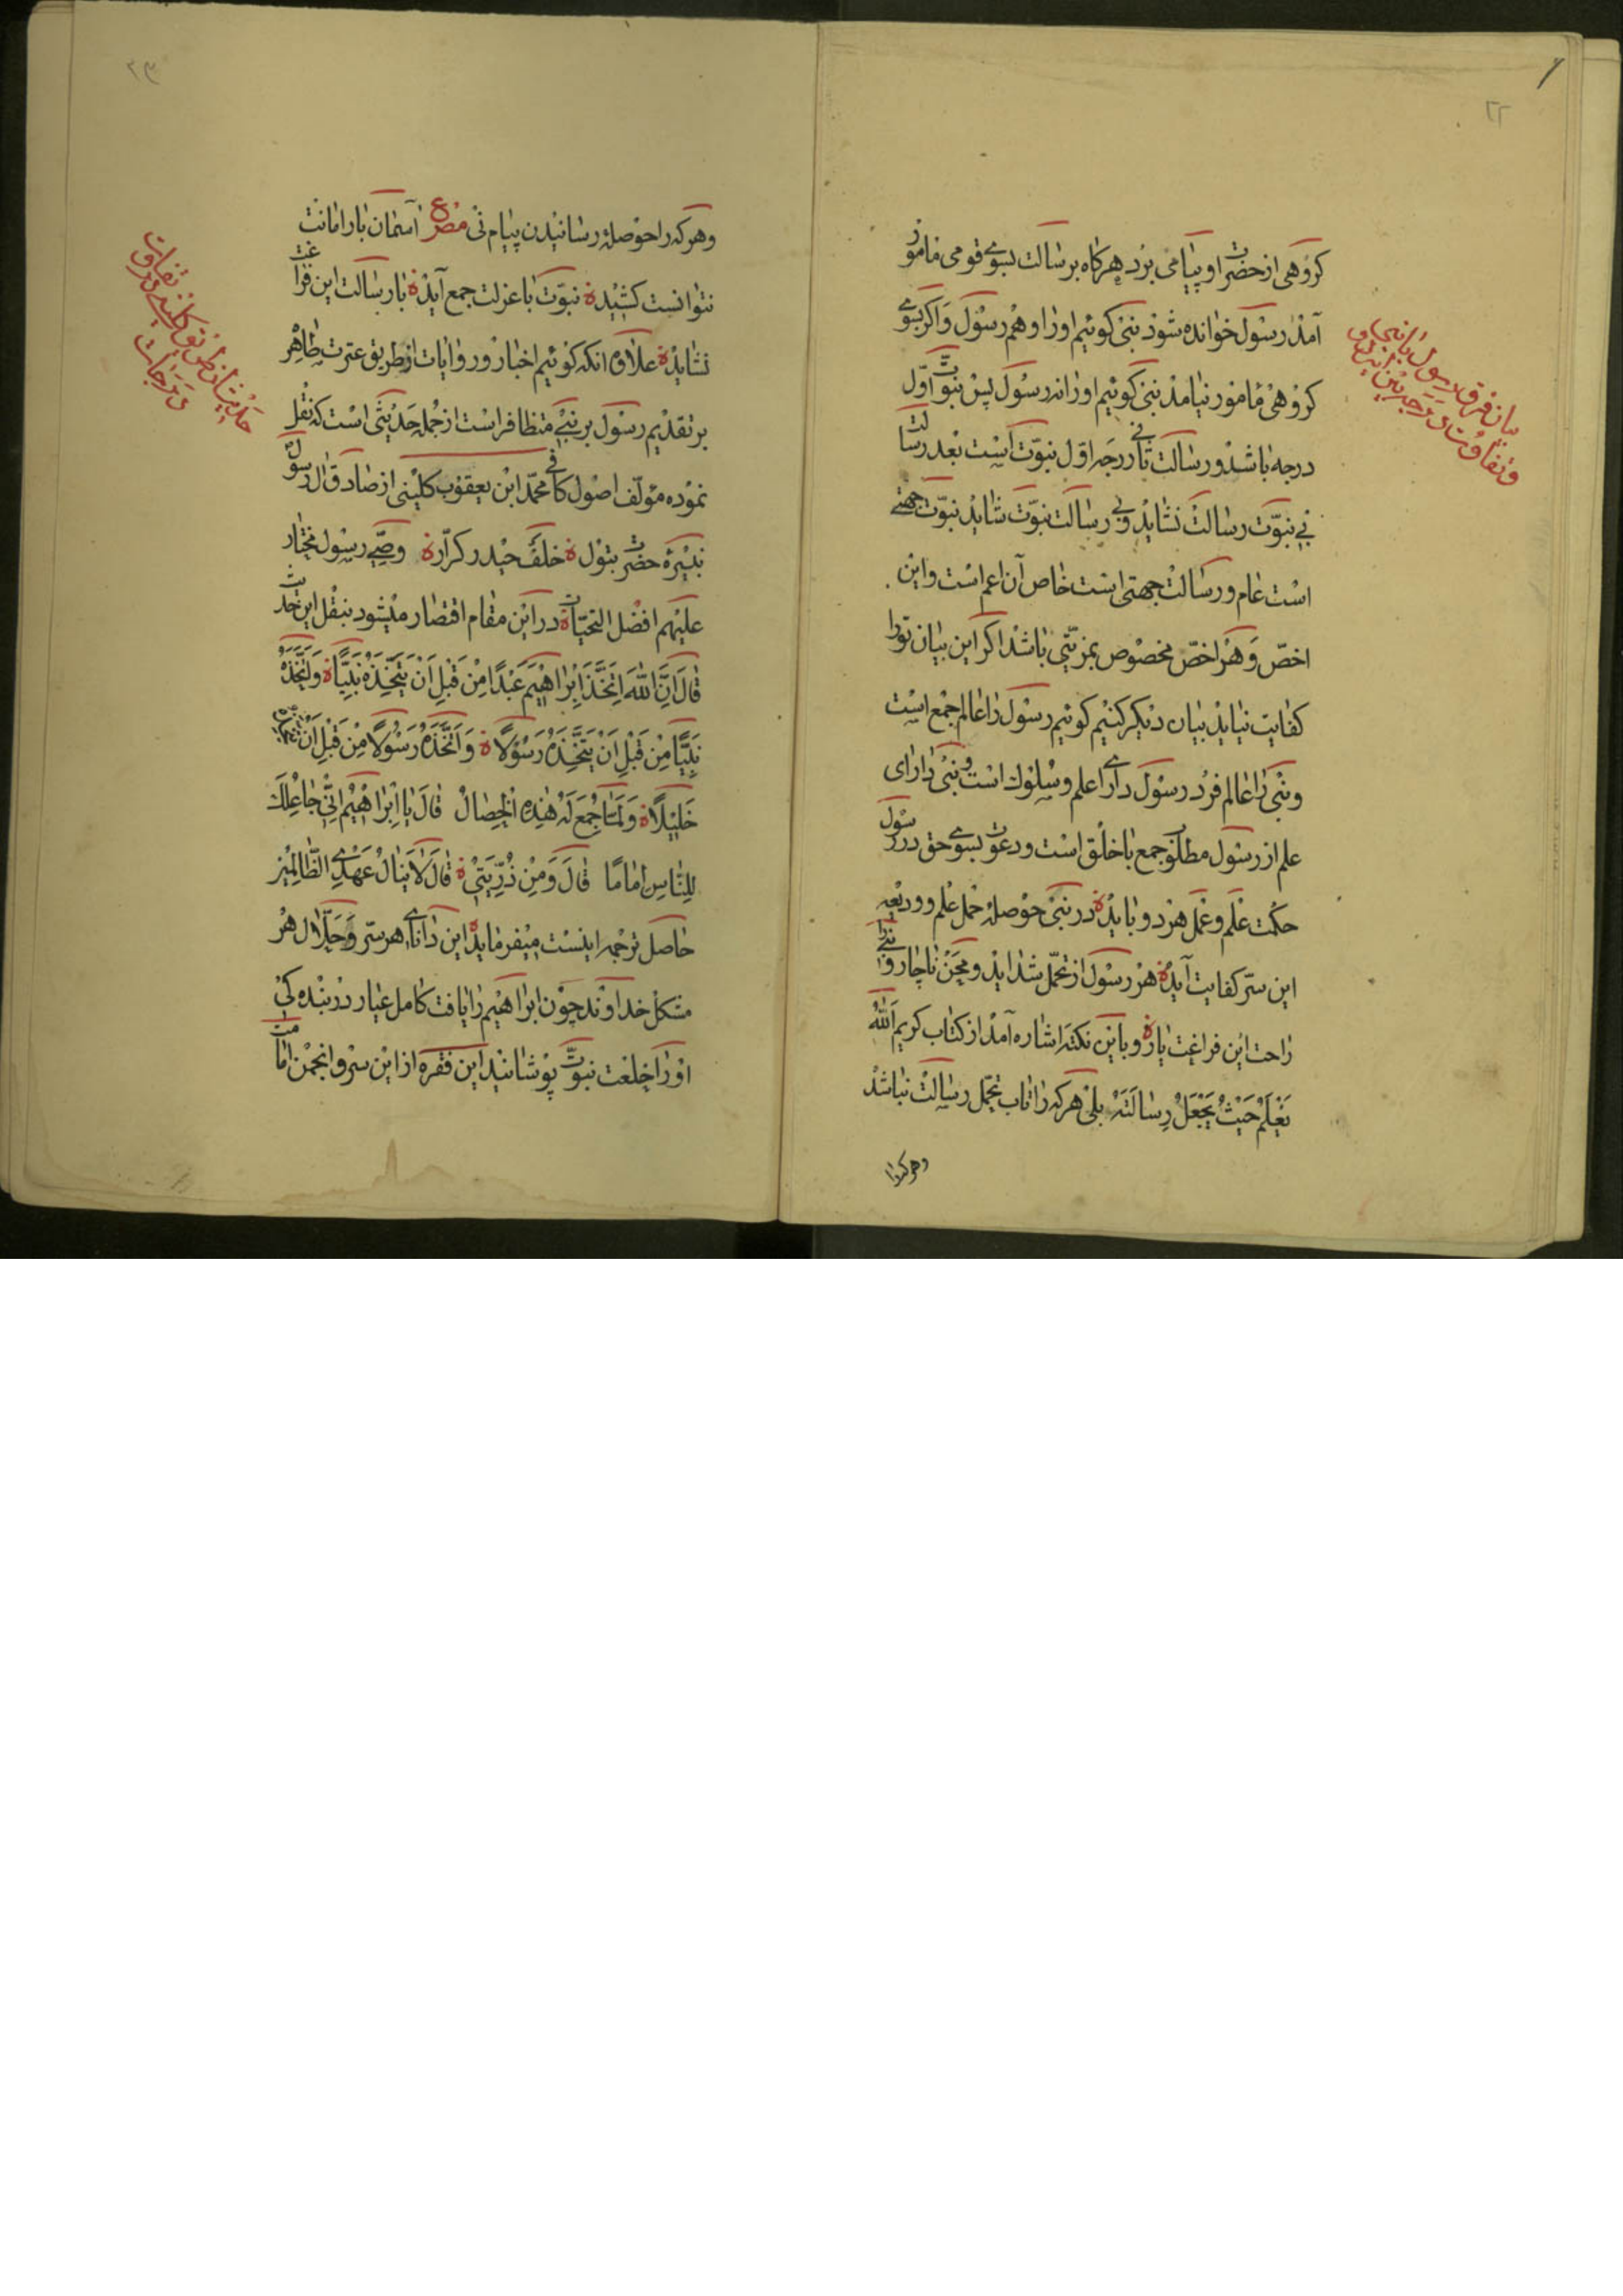 ۲۲
کروهی از حضرت او پیامی برد هرکاه برسالت بسوی قومی مامور
آمد رسول خوانده شود نبی کوئیم او را و هم رسول و اکر بسوی
کروهی مامور نیامد نبی کوئیم او را نه رسول پس نبوت اوّل
درجه باشد و رسالت ثانی درجه اوّل نبوّت است بعد رسالت
بی نبوّت رسالت نشاید و بی رسالت نبوّت شاید نبوّت جهتی
است عام و رسالت جهتی است خاص آن اعم است و این
اخصّ و هر اخصّ مخصوص بمزیّتی باشد اکر این بیان تو را
کفایت نیاید بیان دیکر کنیم کوئیم رسول را عالم جمع است
و نبی را عالم فرد رسول دارای علم و سلوک است و نبی دارای
علم از رسول مطلوب جمع با خلق است و دعوت بسوی حق در رسول
حکمت علم و عمل هر دو باید در نبی حوصله حمل علم و ودیعه
این سرّ کفایت آید هر رسول از تحمّل شداید و محن ناچار و نبی را
راحت این فراغت یار و باین نکته اشاره آمد از کتاب کریم اَللهُ
یَعْلَمُ حَیْثُ یَجْعَلُ رِسٰالَتَهُ بلی هر که را تاب تحمّل رسالت نباشد
وهر که را
بیان فرق رسول با نبی
و تفاوت
۲۳
و هر که را حوصلهٔ رسانیدن پیام نی مصرع آسمان بار امانت
نتوانست کشید نبوّت با عزلت جمع آید با رسالت این فراغت
نشاید علاوه انکه کوئیم اخبار و روایات از طریق عترت طاهره
بر تقدیم رسول بر نبی متظافر است از جمله حدیثی است که نقل
نموده مؤلّف اصول کافی محمّد ابن یعقوب کلینی از صادق آل رسول
نبیرهٔ حضرت بتول خلف حیدر کرّار وصیّ رسول مختار
علیهم افضل التحیّات در این مقام اقتصار میشود بنقل این حدیث
قٰالَ اِنَّ اللهَ اِتَّخَذَ اِبْرٰاهیمَ عَبْدًا مِنْ قَبْلِ اَنْ یَتَّخِذَهُ نَبِیًّا وَ اتَّخَذَهُ
نَبِیًّا مِنْ قَبْلِ اَنْ یَتَّخِذَهُ رَسُولًا وَ اتَّخَذَهُ رَسُولًا مِنْ قَبْلِ اَنْ یَتَّخِذَهُ
خَلیلًا وَ لَمّٰا جُمِعَ لَهُ هٰذِهِ الْخِصٰالُ قٰالَ یٰا اِبْرٰاهیمُ اِنّی جٰاعِلُکَ
لِلنّٰاسِ اِمٰامًا قٰالَ وَ مِنْ ذُرِّیَتی قٰالَ لاٰ یَنٰالُ عَهْدِی الظّٰالِمینَ
حاصل ترجمه اینست میفرماید این دانای هر سرّ و حلّال هر
مشکل خداوند چون ابراهیم را یافت کامل عیار در بنده کی
او را خلعت نبوّت پوشانید این فقره از این سرو انجمن امامت